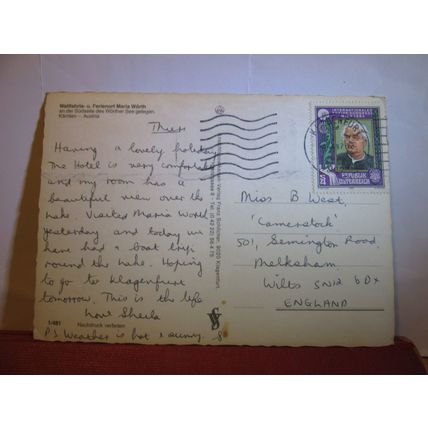 Wallfahrts- u. Ferienort Maria Wörth
an der Südseite des Wörther See gelegen.
Kärnten - Austria
Thurs
Having a lovely holiday
The Hotel is very comfortable
and my room has a
beautiful view over the
lake. Visited Maria Worth
yesterday and today we
have had a boat trip
round the lake. Hoping
to go to Klagenfurt
tomorrow. This is the life
Love Sheila
1/481 Nachdruck verboten
P.S Weather is hot & sunny. S
Verlag Franz Schilcher, 9020 Klagenfurt
REPUBLIK
ÖSTERREICH
Miss B West,
'Camerstock'
501, Semington Road,
Melksham,
Wilts SN12 6DX
ENGLAND